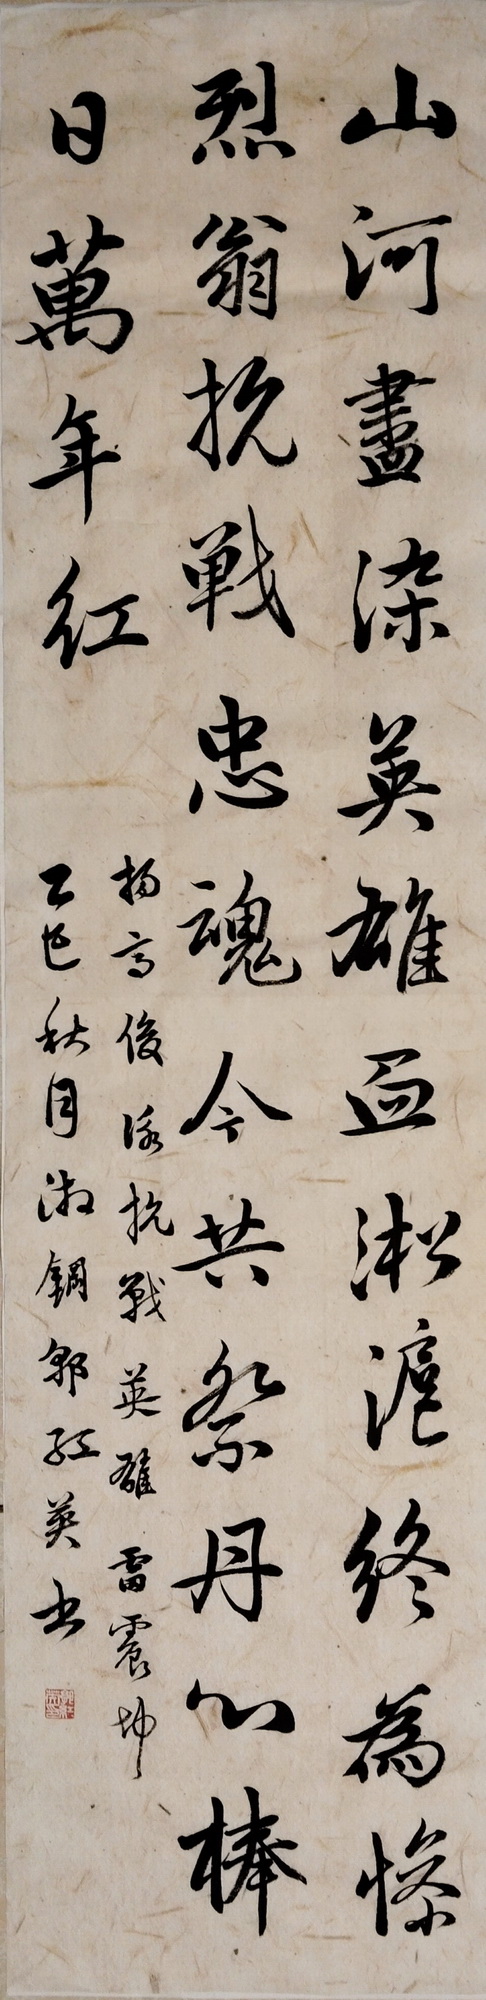 山河盡染英雄血淞滬終為慘
烈翁抗戰忠魂今共祭丹心捧
日萬年紅
揚高俊泳抗戰英雄雷震坤
乙巳秋月淑鋼郭紅英书